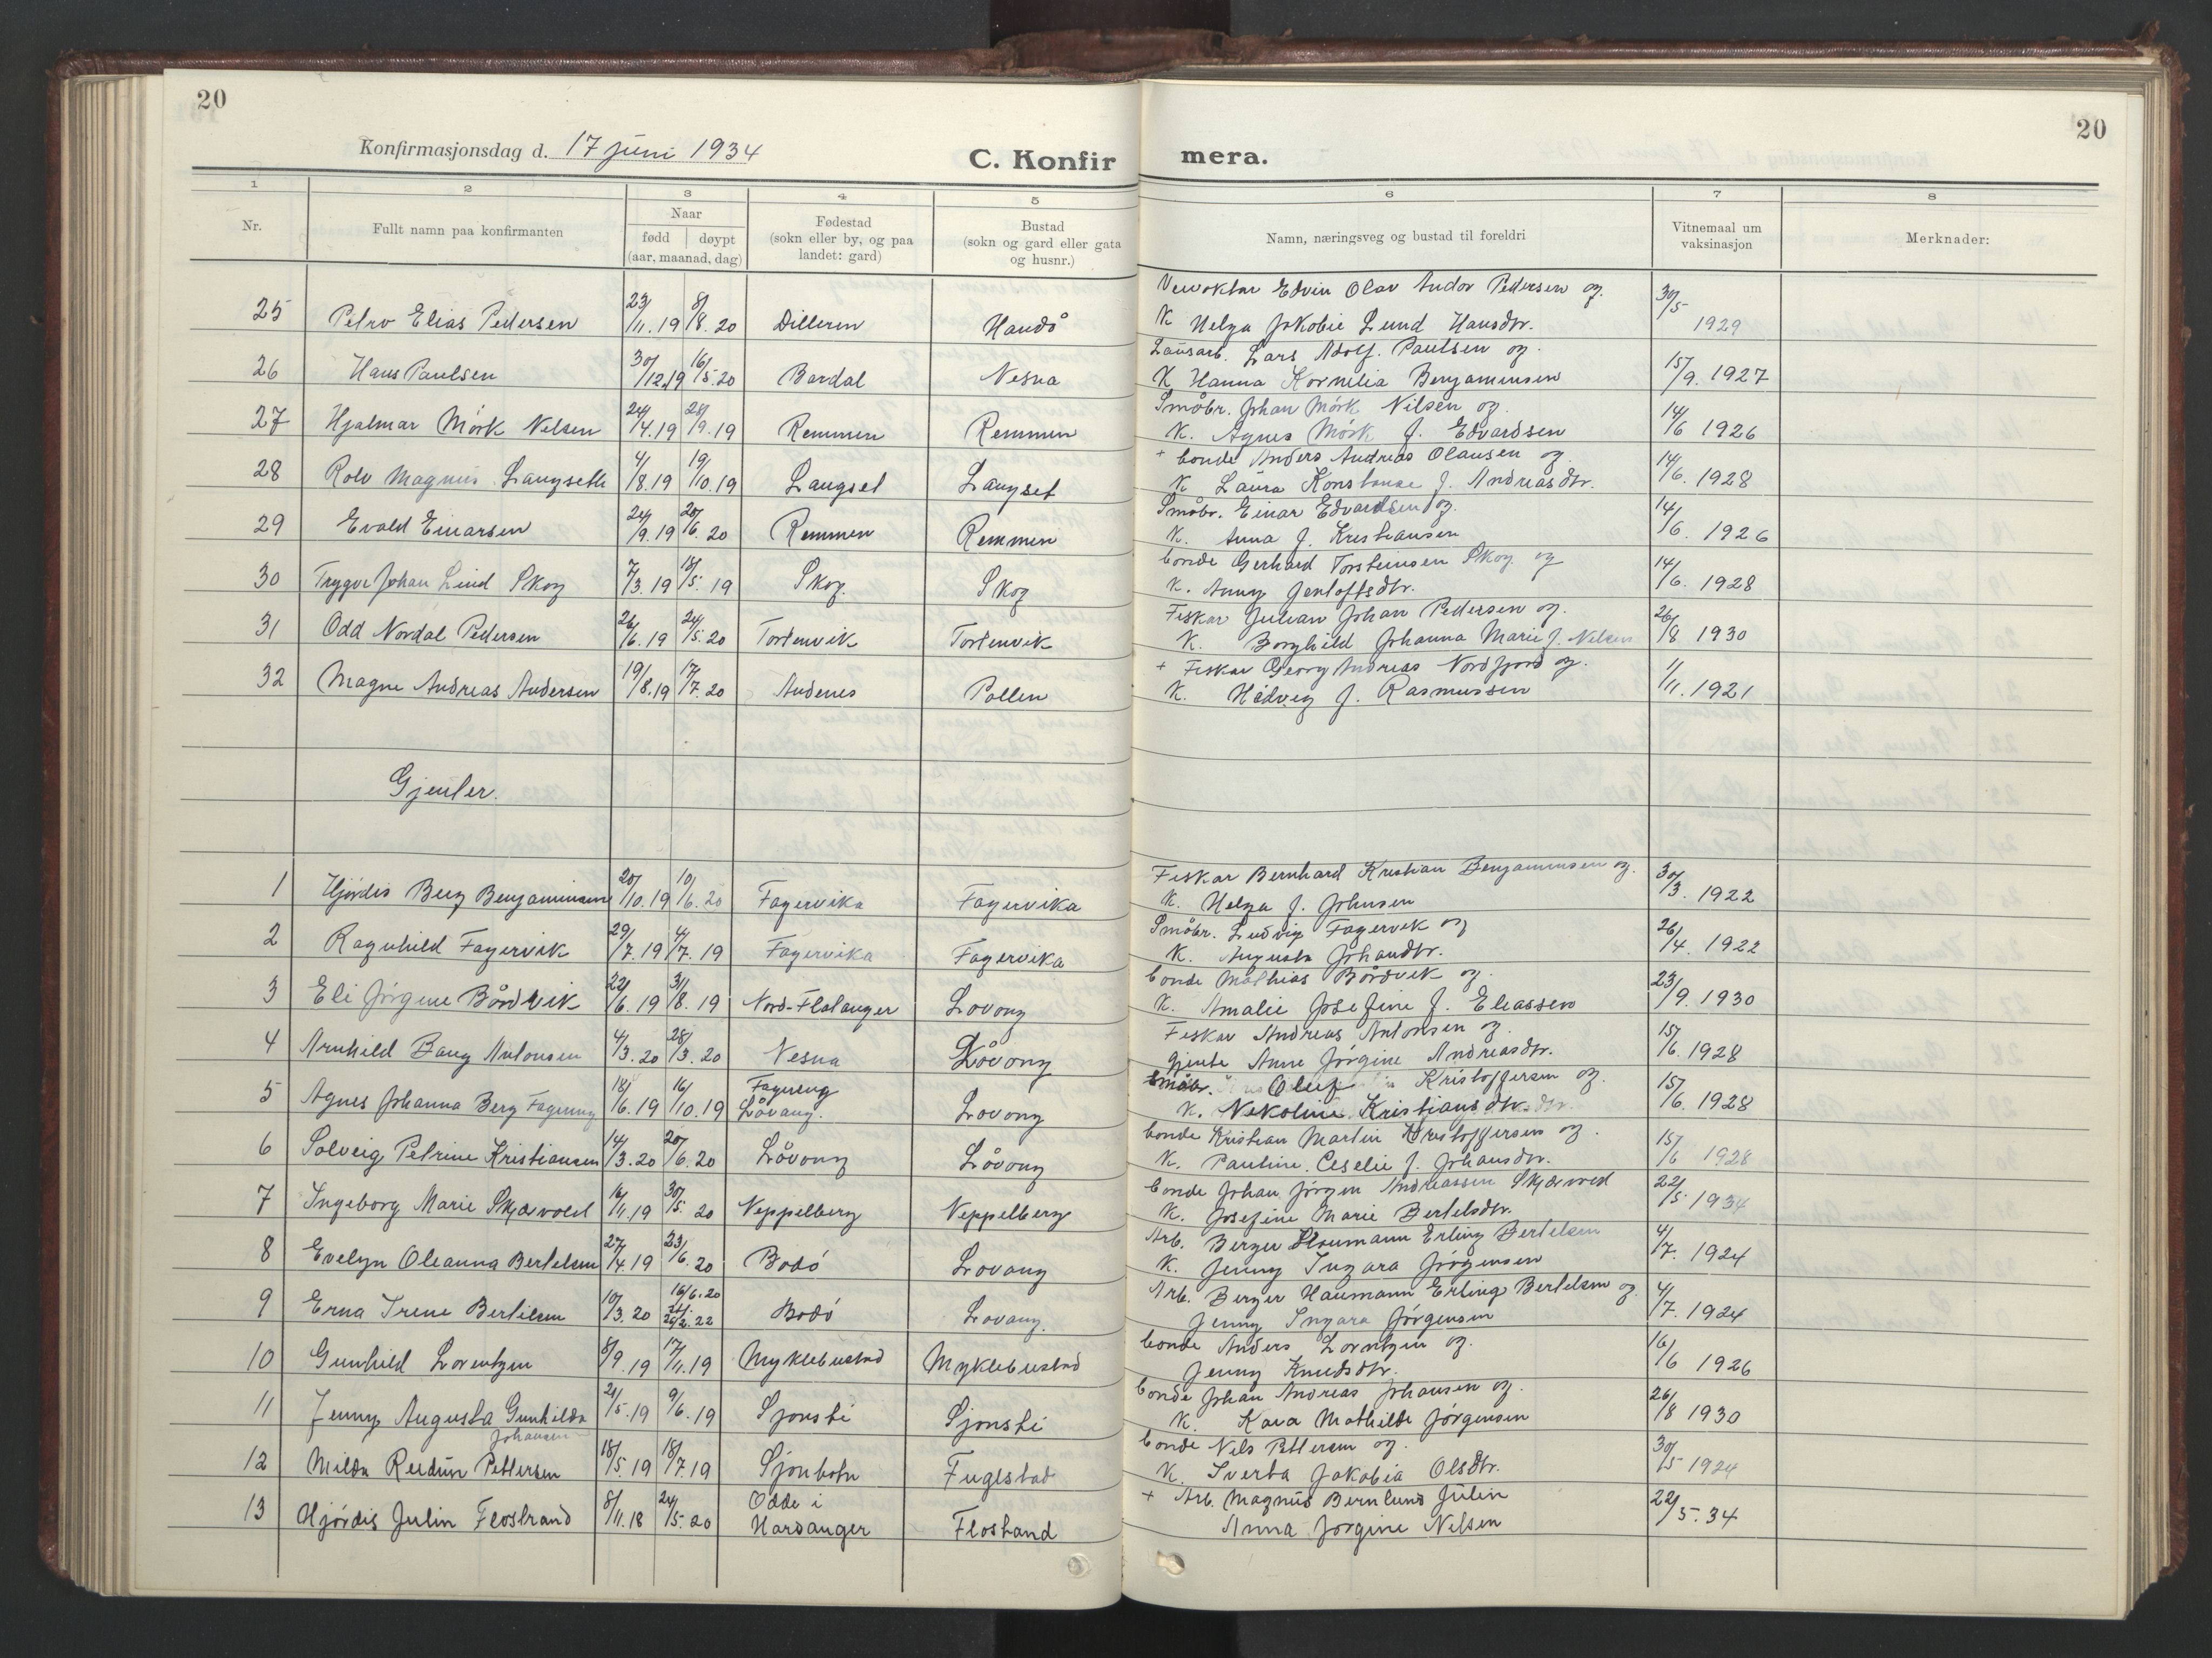 20
20
Konfirmasjonsdag d. 17 juni 1934
C. Konfir mera.
1 2 3 4 5 6 7 8
Nr.
Fullt namn paa konfirmanten
Naar
fødd døypt
(aar, maanad, dag)
Fødestad
(sokn eller by, og paa
landet: gard)
Bustad
(sokn og gard eller gata
og husnr.)
Namn, næringsveg og bustad til foreldri
Vitnemaal um
vaksinasjon
Merknader:
Edvin Olav Andor Pedersen og
25 Petro Elias Pedersen 23/11.19 8/8.20 Dilleren Handø K Helga Jakobie Lund Hansdtr. 30/5 1929
Lausarb. Lars Adolf Paulsen og
26 Hans Paulsen 30/12.19 16/5.20 Bardal Nesna K Hanna Kornelia Benjaminsen 15/9.1927
Småbr. Johan Mörk Nilsen og
27 Hjalmar Mörk Nilsen 24/4.19 28/9.19 Remmen Remmen K. Agnes Mörk f. Edvardsen 14/6 1926
+ bonde Anders Andreas Olausen og
28 Rolv Magnus Langseth 4/8.19 19/10.19 Langset Langset K Laura Konstanse f. Andreasdtr. 14/6.1928
Småbr. Einar Edvardsen og
29 Evald Einarsen 24/9.19 20/6.20 Remmen Remmen K. Anna f. Kristiansen 14/6.1926
bonde Gerhard Torsteinsen Skog og
30 Trygve Johan Lind Skog 7/3.19 18/5.19 Skog Skog K. Anny Jentoftsdtr. 14/6.1928
Fiskar Julian Johan Pedersen og
31 Odd Nordal Pedersen 26/6.19 24/5.20 Tortenvik Tortenvik K. Borghild Johanna Marie f. Nilsen 26/8 1930
+ Fiskar Georg Andreas Nordfjord og
32 Magne Andreas Andersen 19/8.19 17/7.20 Andenes Pollen K. Hedvig f. Rasmussen 1/11.1921
Gjenter.
Fiskar Bernhard Kristian Benjaminsen og
1 Hjördis Berg Benjaminsen 20/10.19 10/6.20 Fagervika Fagervika K. Helga f. Johnsen 30/3.1922
Småbr. Ludvig Fagervik og
2 Ragnhild Fagervik 29/7.19 4/7.19 Fagervika Fagervika K. Augusta Johandtr. 26/4.1922
bonde Mathias Bårdvik og
3 Eli Jörgine Bårdvik 22/6.19 31/8.19 Nord-Flatanger Lovong K. Amalie Josefine f. Eliassen 23/9.1930
Fiskar Andreas Antonsen og
4 Arnhild Bang Antonsen 4/3.20 28/3.20 Nesna Låvong gjente Anne Jörgine Andreasdtr. 15/6.1928
Småbr. Oluf Kristoffersen og
5 Agnes Johanna Berg Fagereng 18/6.19 16/10.19 Fagereng Låvang. Lovong K. Nekoline Kristiansdtr. 15/6.1928
bonde Kristian Martin Kristoffersen og
6 Solveig Petrine Kristiansen 14/3.20 20/6.20 Låvong Låvong K. Pauline Ceselie f. Johansdtr. 15/6 1928
bonde Johan Jörgen Andreassen Skjærvold
7 Ingeborg Marie Skjærvold 16/11.19 30/5.20 Neppelberg Neppelberg K. Josefine Marie Bertelsdtr. 22/5 1934
Arb. Berger Haumann Erling Bertelsen
8 Evelyn Oleanna Bertelsen 27/4.19 23/6.20 Bodö Lovang K. Jenny Ingara Jörgensen 4/7.1924
Arb. Berger Haumann Erling Bertelsen og
9 Erna Irene Bertelsen 10/3.20 16/6.20 26/2.22 Bodö Lovang. Jenny Ingara Jörgensen 4/7.1924
bonde Anders Lorntzen og
10 Gunhild Lorentzen 8/9.19 17/11.19 Myklebustad Myklebustad Jenny Knudsdtr. 16/6 1926
bonde Johan Andreas Johansen og
11 Jenny Augusta Gunhilda Johansen 21/5.19 9/6.19 Sjonsti Sjonsti K Kara Mathilde Jörgensen 26/8 1930
bonde Nils Pettersen og
12 Milda Reidun Pettersen 18/5.19 18/7.19 Sjonbotn Fuglstad K. Sverta Jakobia Olsdtr. 30/5 1924
+ Arb. Magnus Bernlund Julin
13 Hjördis Julin Flostrand 8/11.18 24/5.20 Odde i Hardanger Flostrand Anna Jörgine Nilsen 22/5.34